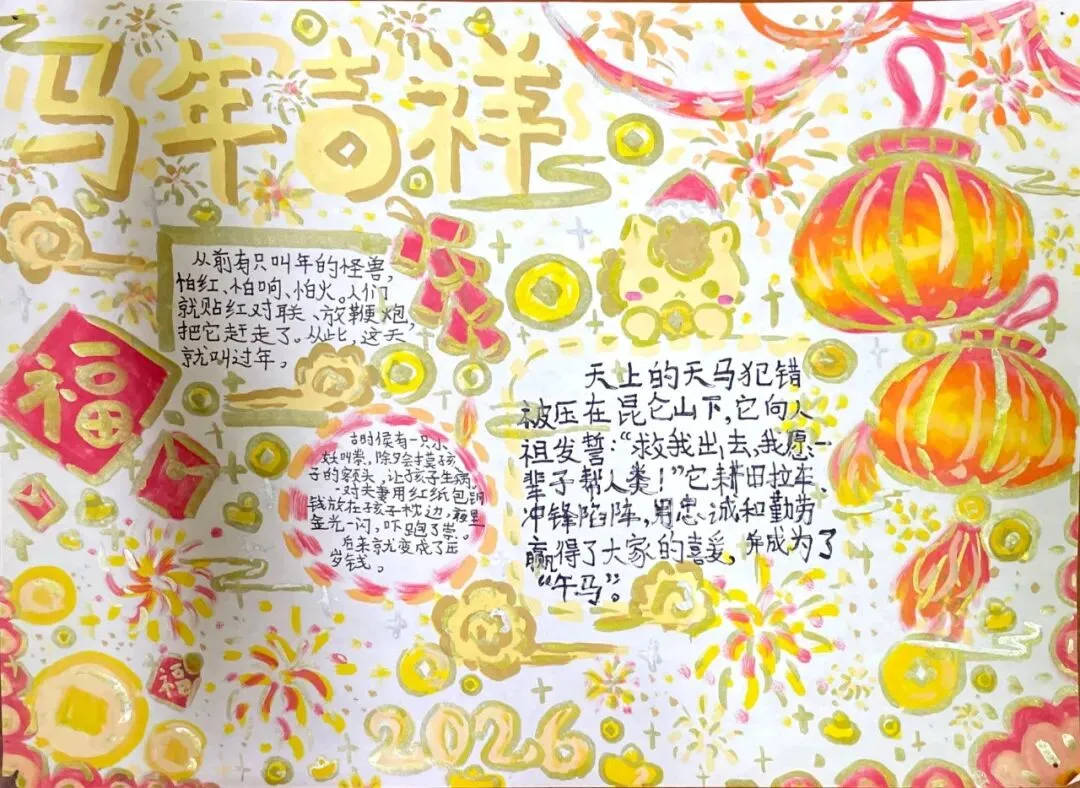 马年吉祥
从前有只叫年的怪兽，
怕红、怕响、怕火。人们
就贴红对联、放鞭炮，
把它赶走了。从此，这天
就叫过年。
福
古时侯有一只小
妖叫祟，除夕会摸孩
子的额头，让孩子生病。
一对夫妻用红纸包铜
钱放在孩子枕边，夜里
金光一闪，吓跑了祟。
后来就变成了压
岁钱。
天上的天马犯错
被压在昆仑山下，它向人
祖发誓：“救我出去，我愿一
辈子帮人类！”它耕田拉车、
冲锋陷阵，用忠诚和勤劳
赢得了大家的喜爱，并成为了
“午马”。
福
2026